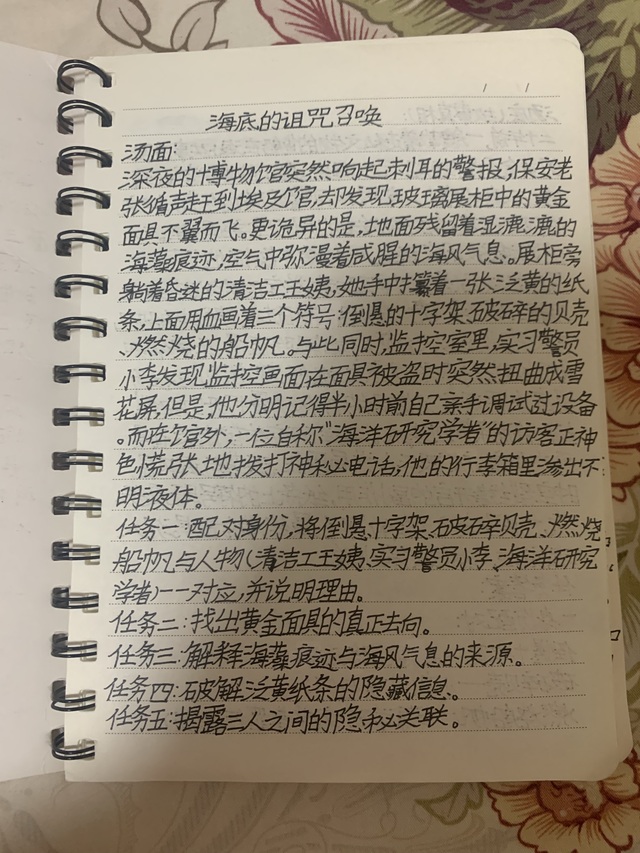 海底的诅咒召唤
汤面:
深夜的博物馆突然响起刺耳的警报,保安老
张循声赶到埃及馆,却发现玻璃展柜中的黄金
面具不翼而飞。更诡异的是,地面残留着湿漉漉的
海藻痕迹,空气中弥漫着咸腥的海风气息。展柜旁
躺着昏迷的清洁工王姨,她手中攥着一张泛黄的纸
条,上面用血画着三个符号:倒悬的十字架、破碎的贝壳
、燃烧的船帆。与此同时,监控室里,实习警员
小李发现监控画面在面具被盗时突然扭曲成雪
花屏,但是,他分明记得半小时前自己亲手调试过设备
。而在馆外,一位自称"海洋研究学者"的访客正神
色慌张地拨打神秘电话,他的行李箱里渗出不
明液体。
任务一:配对身份,将倒悬十字架、破碎贝壳、燃烧
船帆与人物(清洁工王姨、实习警员小李、海洋研究
学者)一一对应,并说明理由。
任务二:找出黄金面具的真正去向。
任务三:解释海藻痕迹与海风气息的来源。
任务四:破解泛黄纸条的隐藏信息。
任务五:揭露三人之间的隐秘关联。